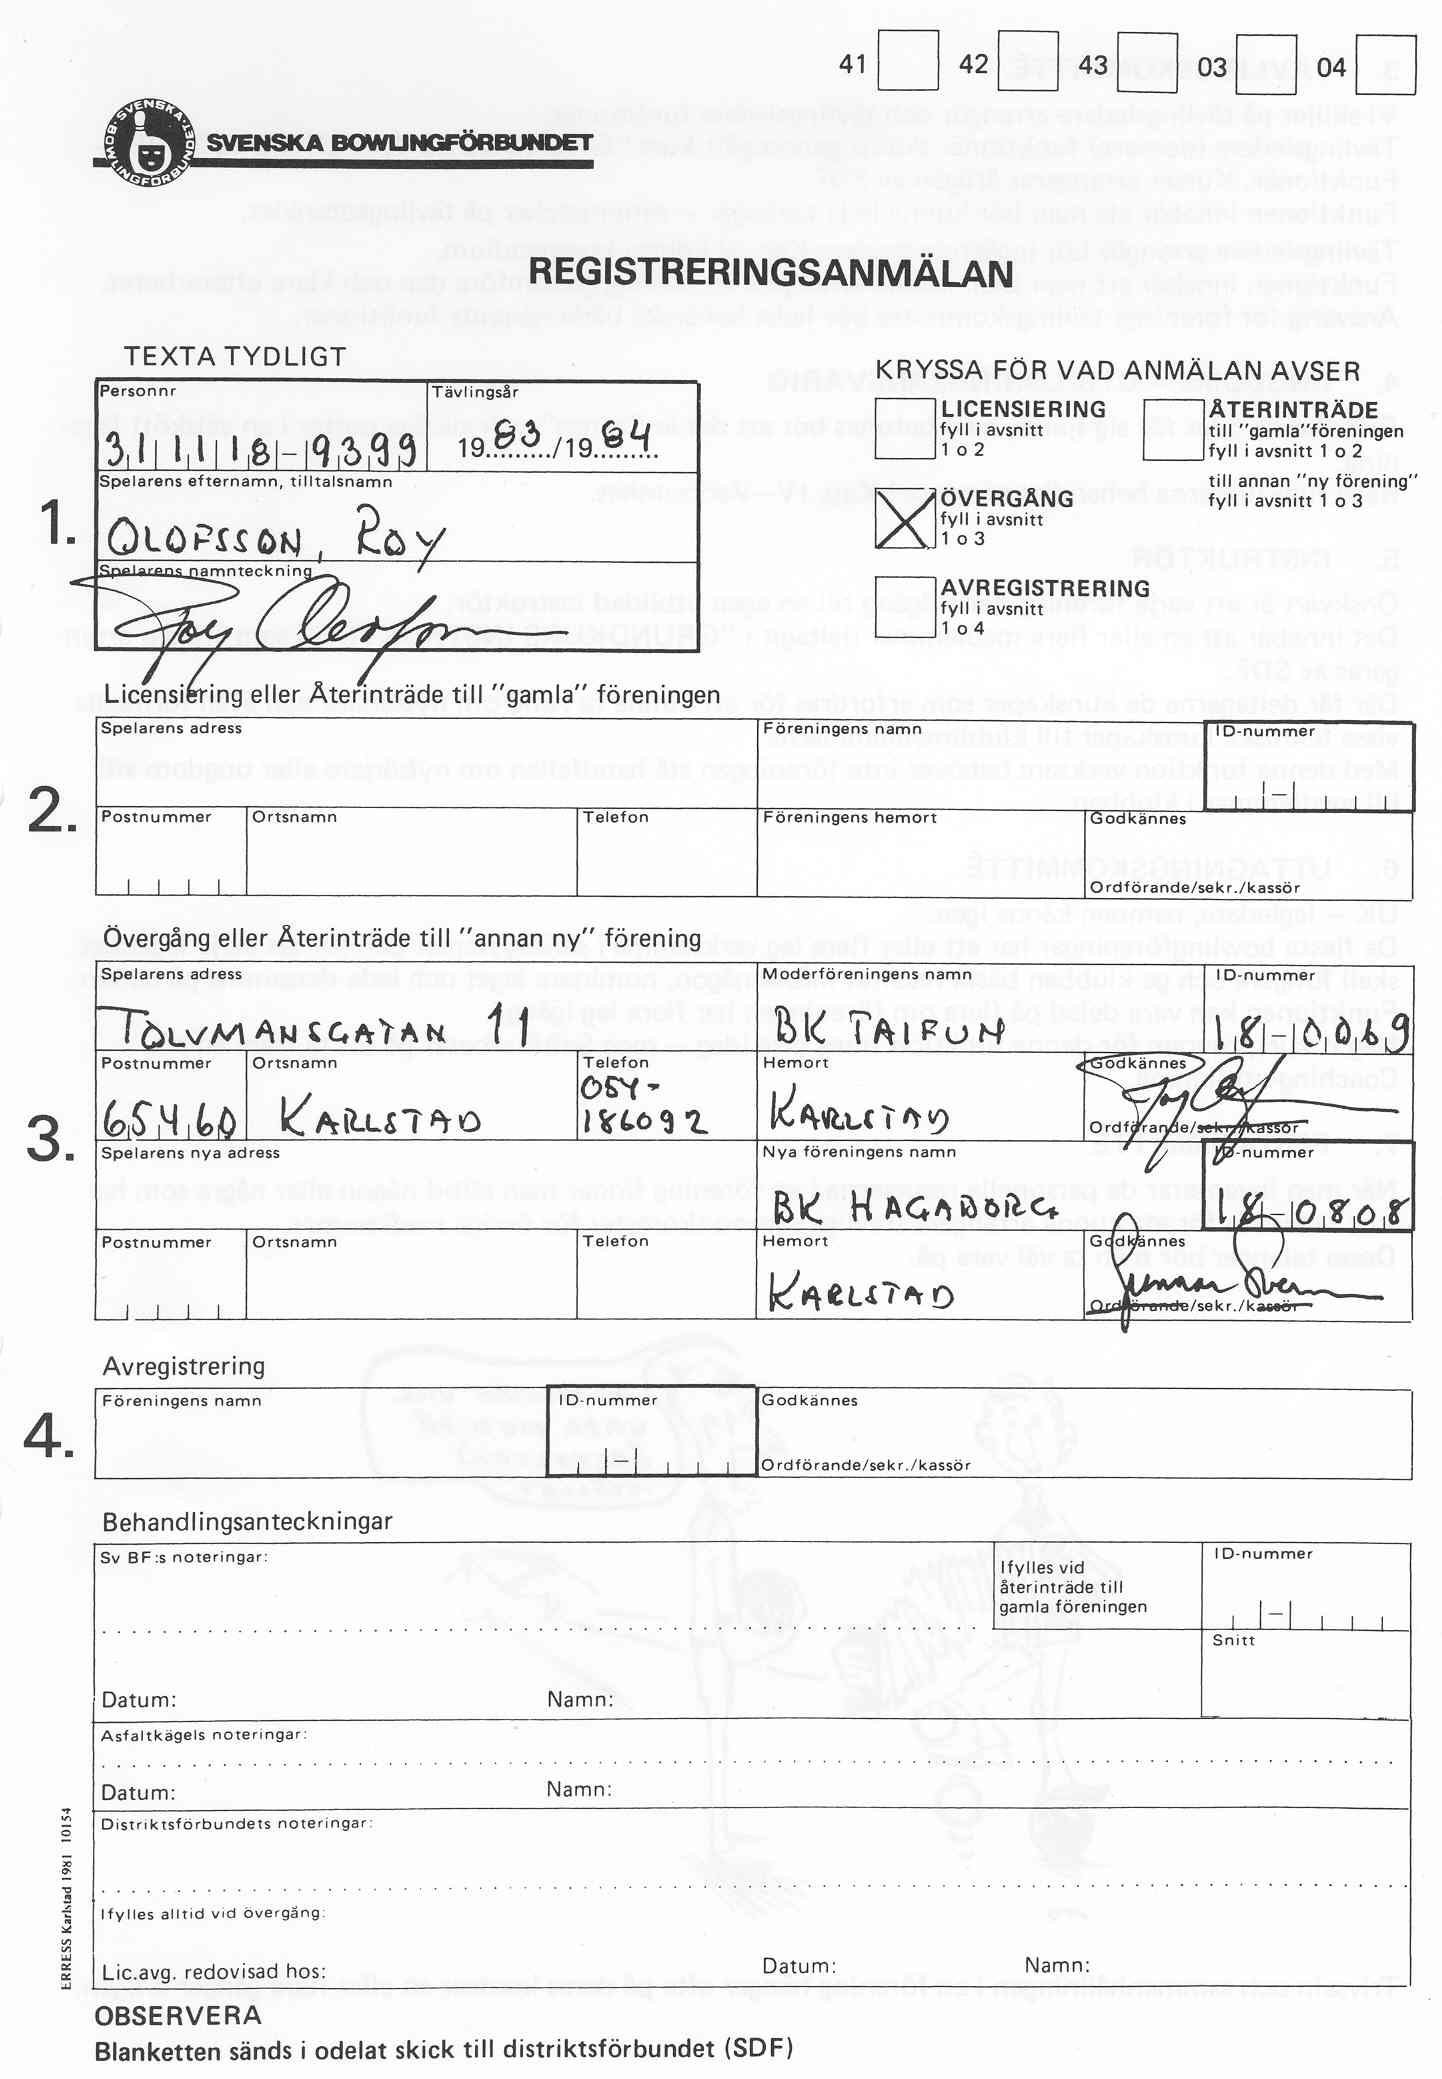 41 42 43 03 04
SVENSKA BOWLINGFÖRBUNDET
REGISTRERINGSANMÄLAN
TEXTA TYDLIGT
Personnr
Tävlingsår
311118-9399
1983/1984
1.
Spelarens efternamn, tilltalsnamn
OLOFSSON, ROY
Spelarens namnteckning
Roy Olofsson
KRYSSA FÖR VAD ANMÄLAN AVSER
LICENSIERING
fyll i avsnitt
1 o 2
ÅTERINTRÄDE
till "gamla" föreningen
fyll i avsnitt 1 o 2
till annan "ny förening"
fyll i avsnitt 1 o 3
X ÖVERGÅNG
fyll i avsnitt
1 o 3
AVREGISTRERING
fyll i avsnitt
1 o 4
Licensiering eller Återinträde till "gamla" föreningen
2.
Spelarens adress
Föreningens namn
ID-nummer
–
Postnummer
Ortsnamn
Telefon
Föreningens hemort
Godkännes
Ordförande/sekr./kassör
Övergång eller Återinträde till "annan ny" förening
3.
Spelarens adress
Moderföreningens namn
ID-nummer
TOLVMANSGATAN 11
BK TAIFUN
18-0069
Postnummer
Ortsnamn
Telefon
Hemort
Godkännes
65460
KARLSTAD
054-
186092
KARLSTAD
Ordförande/sekr./kassör
Spelarens nya adress
Nya föreningens namn
ID-nummer
BK HAGABORG
18-0808
Postnummer
Ortsnamn
Telefon
Hemort
Godkännes
KARLSTAD
Gunnar
Ordförande/sekr./kassör
Avregistrering
4.
Föreningens namn
ID-nummer
–
Godkännes
Ordförande/sekr./kassör
Behandlingsanteckningar
Sv BF:s noteringar:
Ifylles vid
återinträde till
gamla föreningen
ID-nummer
–
Snitt
Datum:
Namn:
Asfaltkägels noteringar:
Datum:
Namn:
Distriktsförbundets noteringar:
Ifylles alltid vid övergång:
Lic.avg. redovisad hos:
Datum:
Namn:
ERRESS Karlstad 1981 10154
OBSERVERA
Blanketten sänds i odelat skick till distriktsförbundet (SDF)